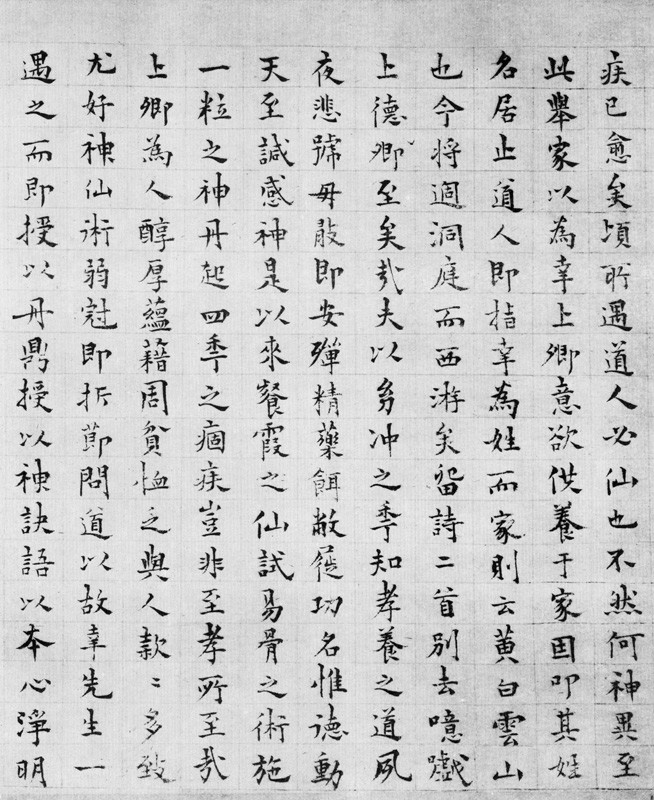 疾已愈矣頃所遇道人必仙也不然何神異至
此舉家以為幸上卿意欲供養于家固叩其姓
名居止道人即指幸為姓而家則云黃白雲山
也今將適洞庭而西游矣留詩二首別去噫戲
上德卿至矣哉夫以幼冲之秊知孝養之道夙
夜悲號毋敢即安殫精藥餌敝屣功名惟德動
天至諴感神是以來餐霞之仙試易骨之術施
一粒之神丹起四秊之痼疾豈非至孝所至哉
上卿為人醇厚蘊籍周貧恤乏與人款〻多致
尤好神仙術弱冠即折節問道以故幸先生一
遇之而即授以丹鼎授以神訣語以本心淨明